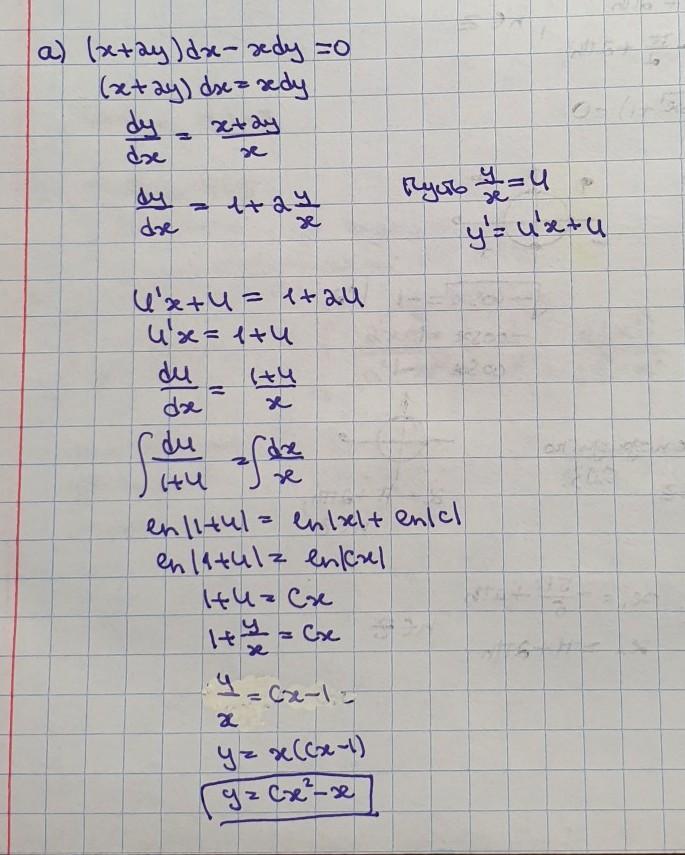 а) (x+2y)dx - xdy = 0
(x+2y)dx = xdy
dy/dx = x+2y/x
dy/dx = 1+2 y/x
Пусть y/x = u
y' = u'x+u
u'x+u = 1+2u
u'x = 1+u
du/dx = 1+u/x
∫ du/1+u = ∫ dx/x
ln|1+u| = ln|x| + ln|c|
ln|1+u| = ln|cx|
1+u = cx
1+ y/x = cx
y/x = cx-1 =
y = x(cx-1)
y = cx²-x